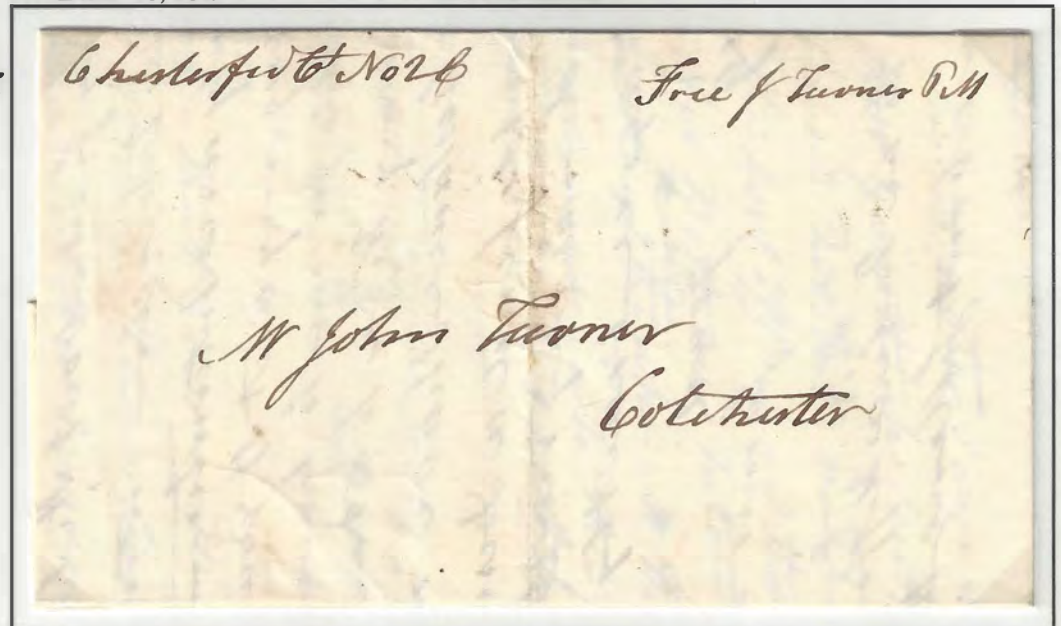 Chesterfied Ct Nov 26
Free J Turner P.M
Mr John Turner
Colchester